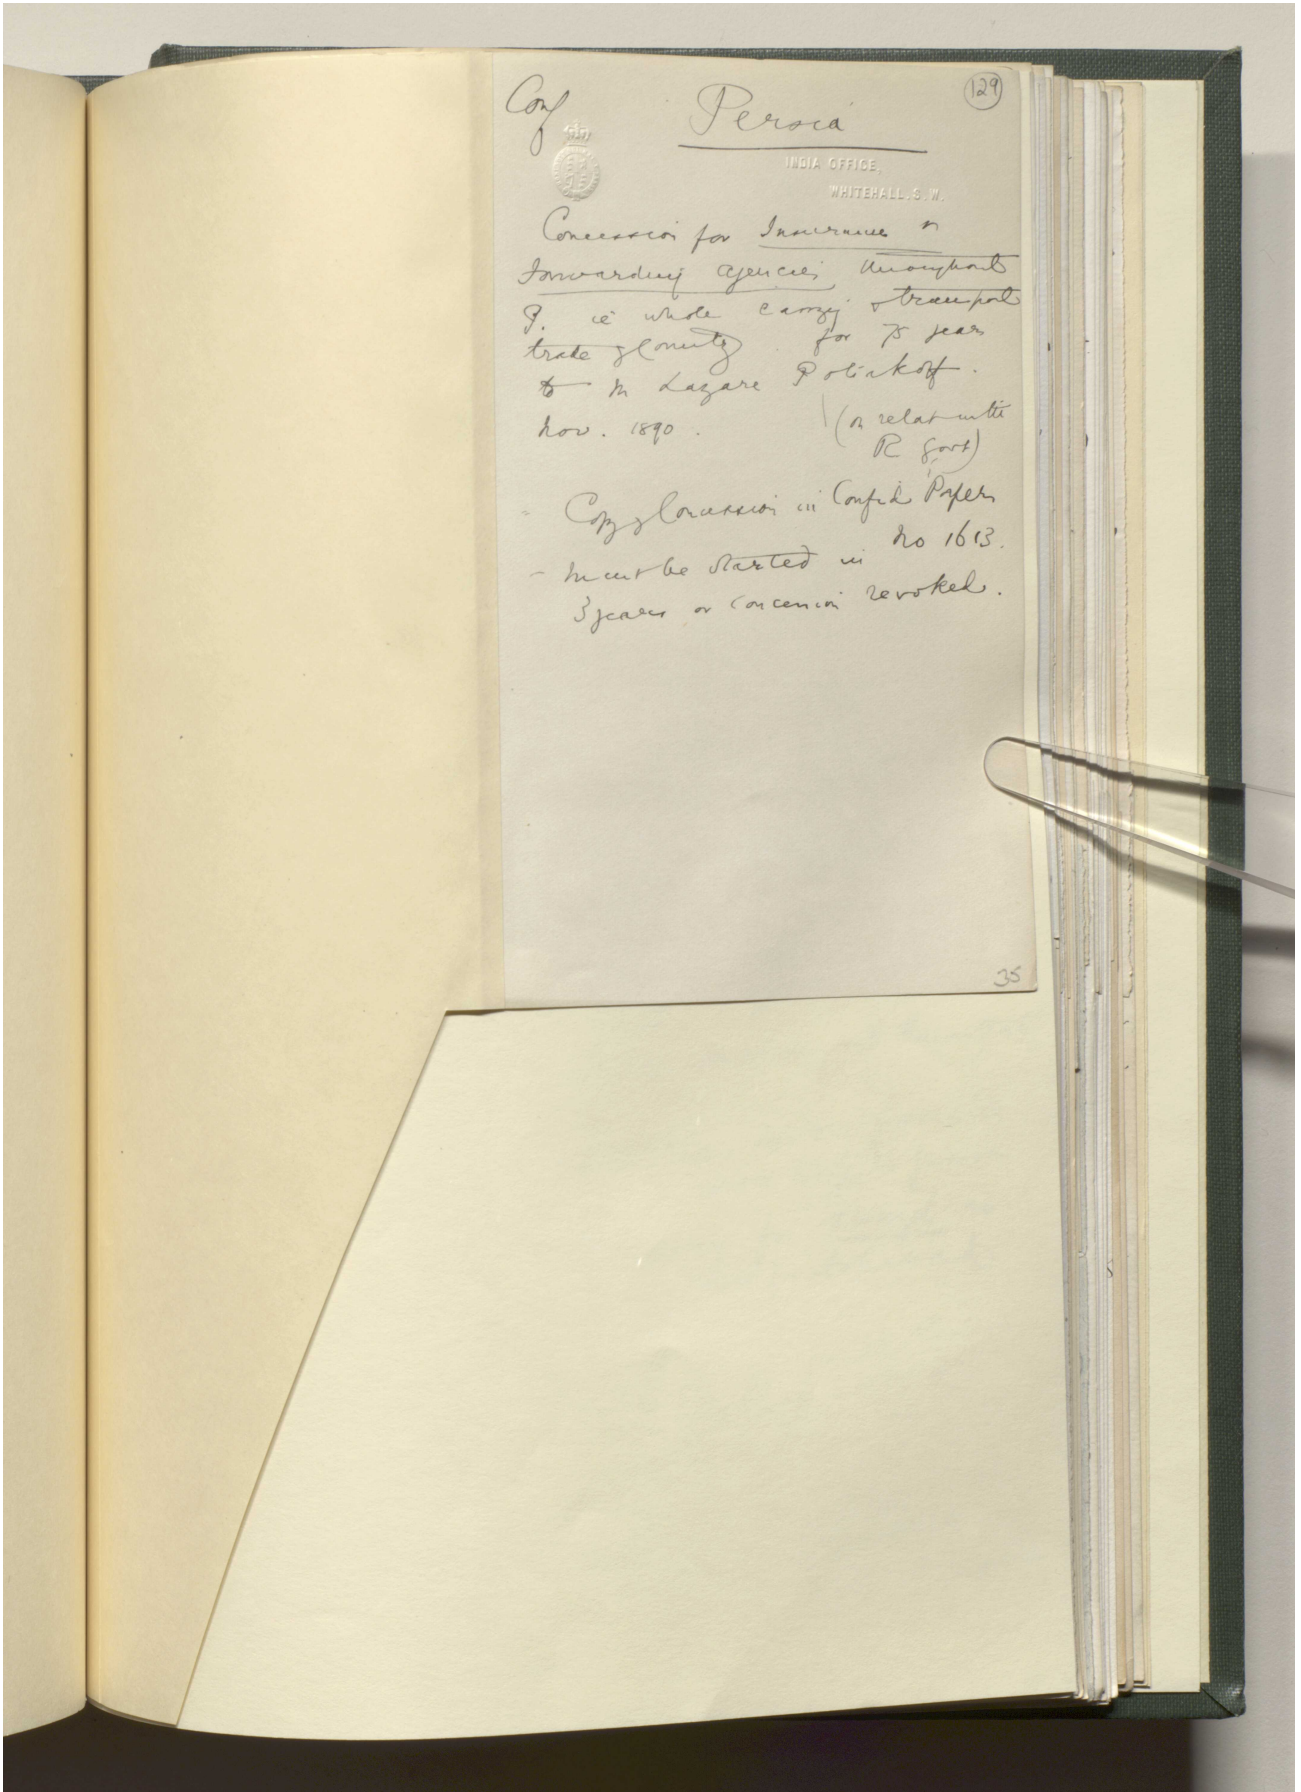 Conf
Persia
129
INDIA OFFICE,
WHITEHALL. S. W.
Concession for Insurance &
forwarding agencies throughout
P. ie whole carrying & transport
trade of Country for 75 years
to M Lazare Poliakoff.
Nov. 1890. (in relat with
R Govt)
Copy of Concession in Confid Papers
No 1613.
- Must be started in
3 years or concession revoked.
35